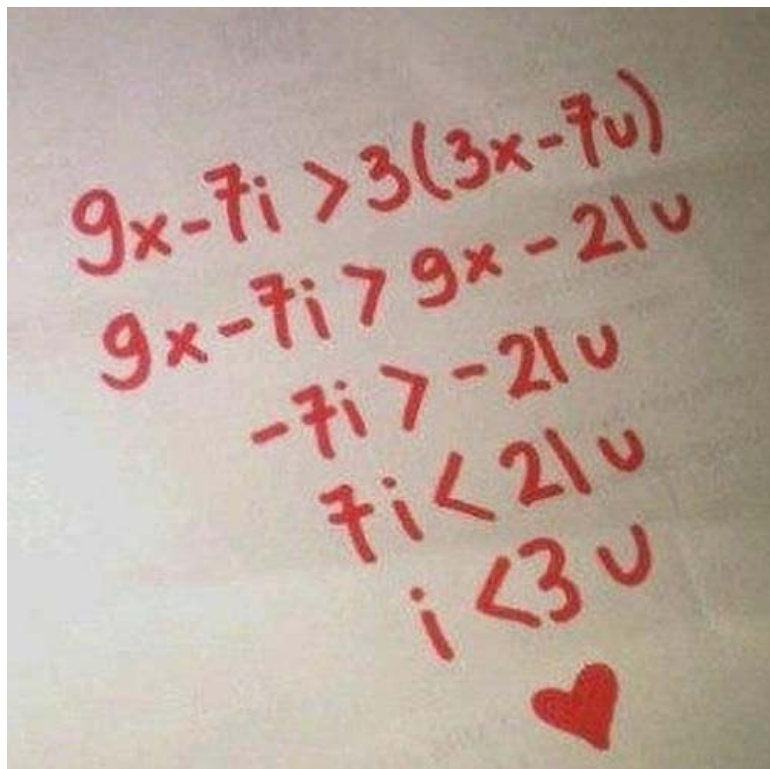 9x-7i > 3(3x-7u)
9x-7i > 9x - 21u
-7i > -21u
7i < 21u
i <3 u